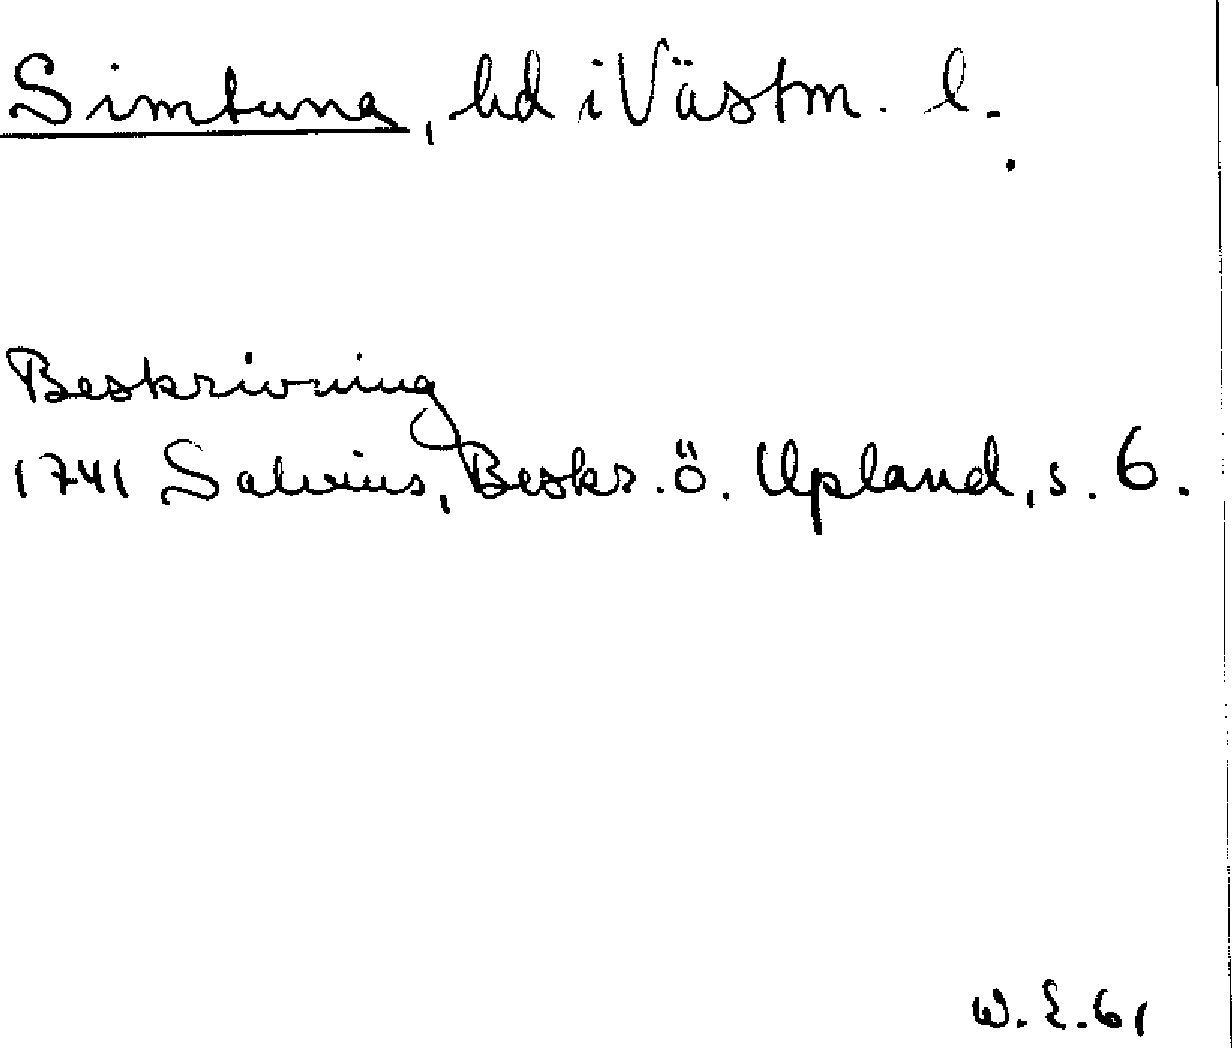 Simtuna, hd i Västm. l.
Beskrivning
1741 Salvius, Beskr. ö. Upland, s. 6.
W. E. 61